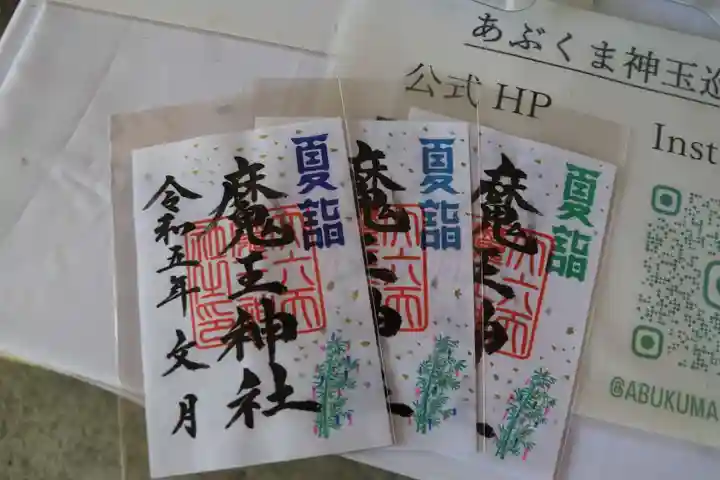 あぶくま神玉巡
公式 HP
Inst
@ABUKUMA
夏詣
魔王神社
令和五年 文月
夏詣
魔王神
夏詣
魔王神